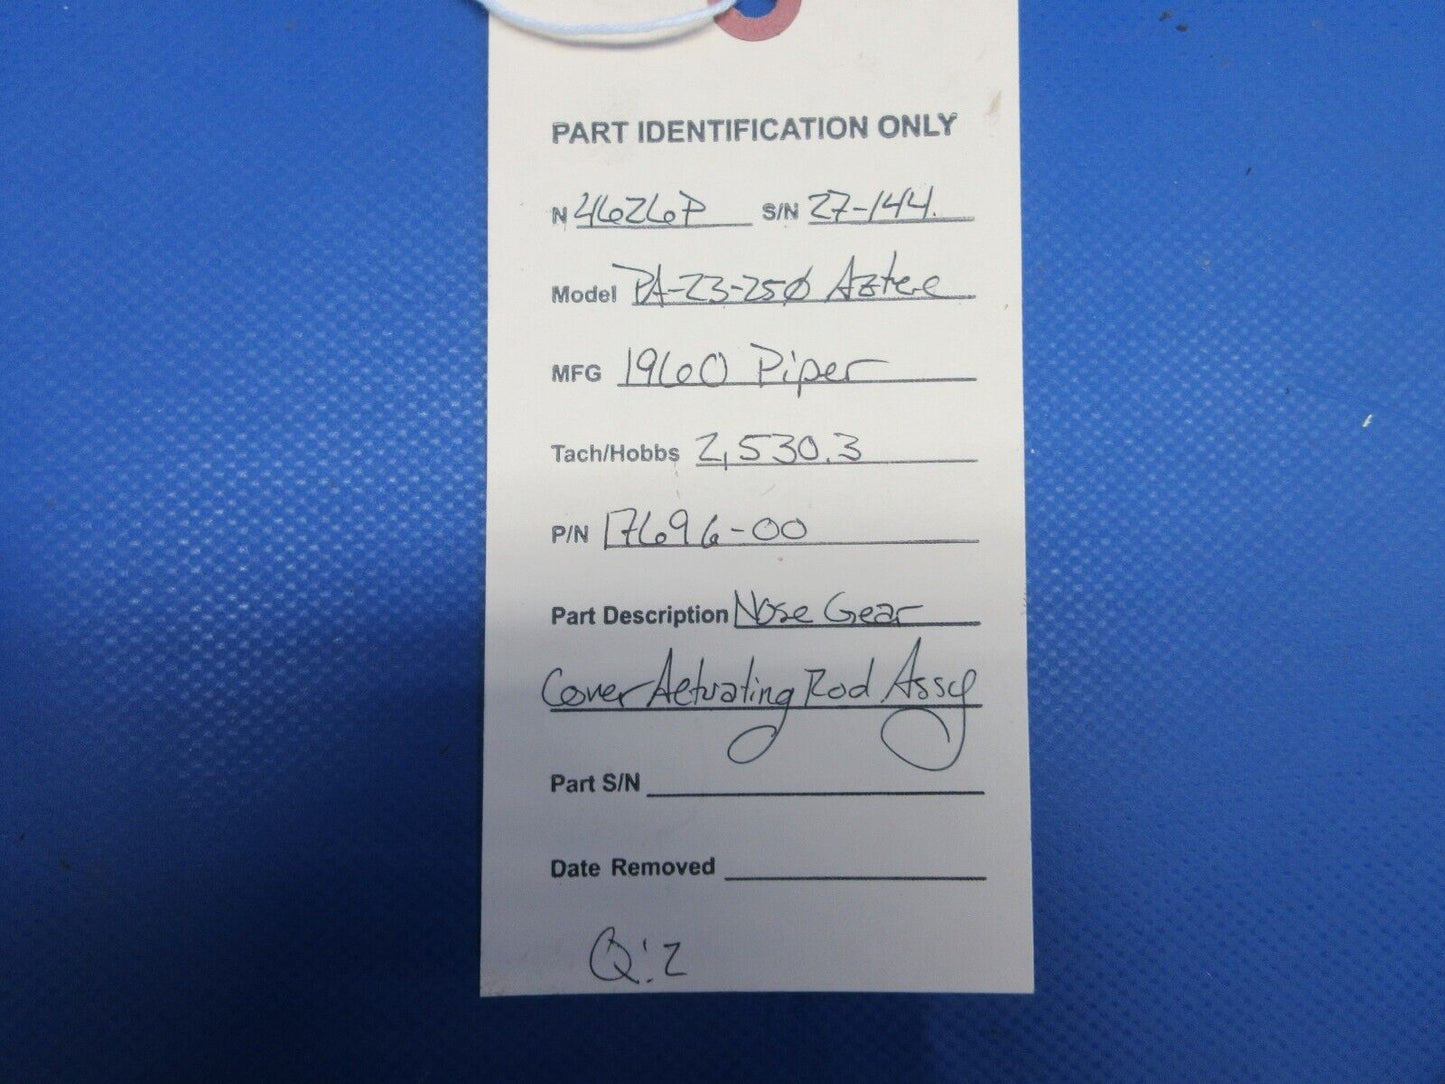 PART IDENTIFICATION ONLY
N 4626P S/N 27-144.
Model PA-23-250 Aztec
MFG 1960 Piper
Tach/Hobbs 2,530.3
P/N 17696-00
Part Description Nose Gear
Cover Actuating Rod Assy
Part S/N
Date Removed
Q:2